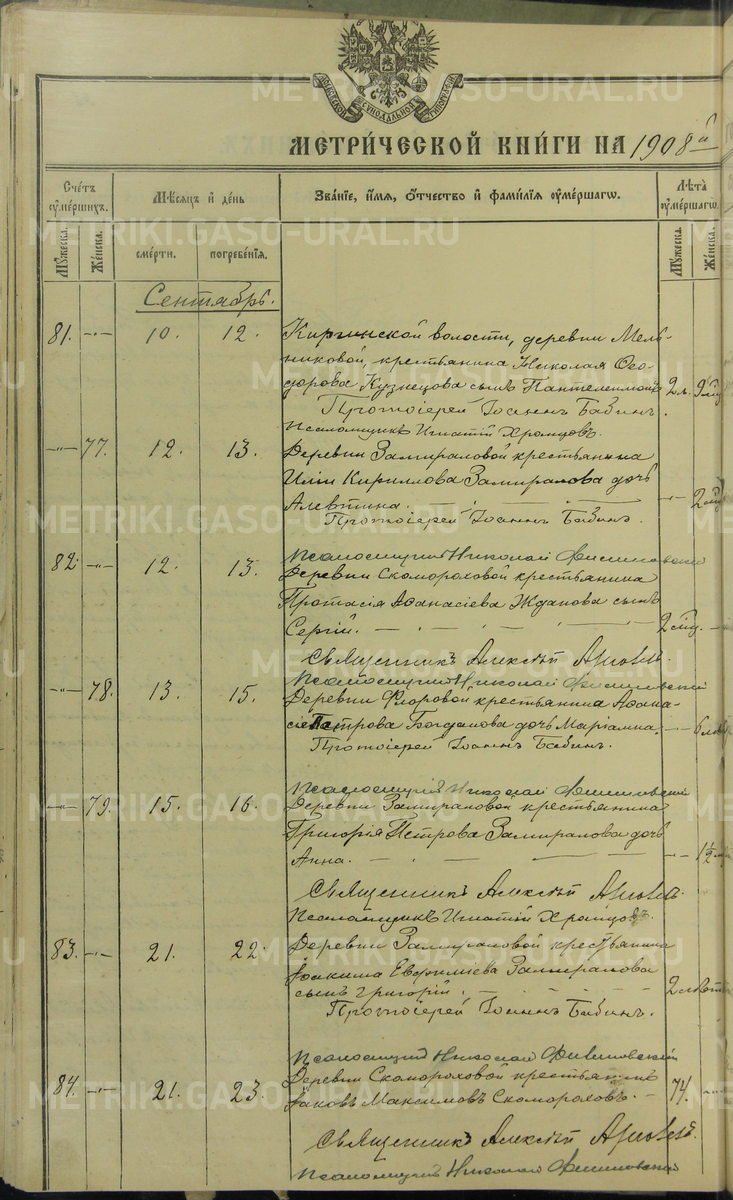 МЕТРИ́ЧЕСКОЙ КНИ́ГИ НА 1908й
Счетъ оумершихъ.
Мѣсяцъ и день
Зва́нїе, и́мя, о́тчество и фами́лїя оуме́ршагѡ.
Лѣта оумершагѡ.
Мужеска.
Женска.
сме́рти.
погребе́нїя.
Мужеска.
Женска.
Сентябрь.
81. -"- 10. 12. Киргинской волости, деревни Мель-
никовой, крестьянина Николая Ѳео-
дорова Кузнецова сынъ Пантелеимонъ 2 л. 9 м.
Протоіерей Іоаннъ Бабинъ.
Псаломщикъ Игнатій Храмцовъ.
-"- 77. 12. 13. Деревни Замираловой крестьянина
Иліи Кириллова Замиралова дочь
Алевтина. -"- 2 мѣс.
Протоіерей Іоаннъ Бабинъ.
Псаломщикъ Николай
82. -"- 12. 13. Деревни Скомороховой крестьянина
Протасія Аѳанасіева Жданова сынъ
Сергій. 2 мѣс. -"-
Священникъ Алексѣй
Псаломщикъ Николай
-"- 78. 13. 15. Деревни Флоровой крестьянина Аѳана-
сія Петрова Богданова дочь Маріамна. -"- 6
Протоіерей Іоаннъ Бабинъ.
Псаломщикъ Николай
-"- 79. 15. 16. Деревни Замираловой крестьянина
Григорія Петрова Замиралова дочь
Анна. -"- 1½
Священникъ Алексѣй
Псаломщикъ Игнатій Храмцовъ.
83. -"- 21. 22. Деревни Замираловой крестьянина
Іоакима Евфиміева Замиралова
сынъ Григорій. 2
Протоіерей Іоаннъ Бабинъ.
Псаломщикъ Николай
84. -"- 21. 23. Деревни Скомороховой крестьянинъ
Іаковъ Максимовъ Скомороховъ. 74. -"-
Священникъ Алексѣй
Псаломщикъ Николай
METRIKI.GASO-URAL.RU